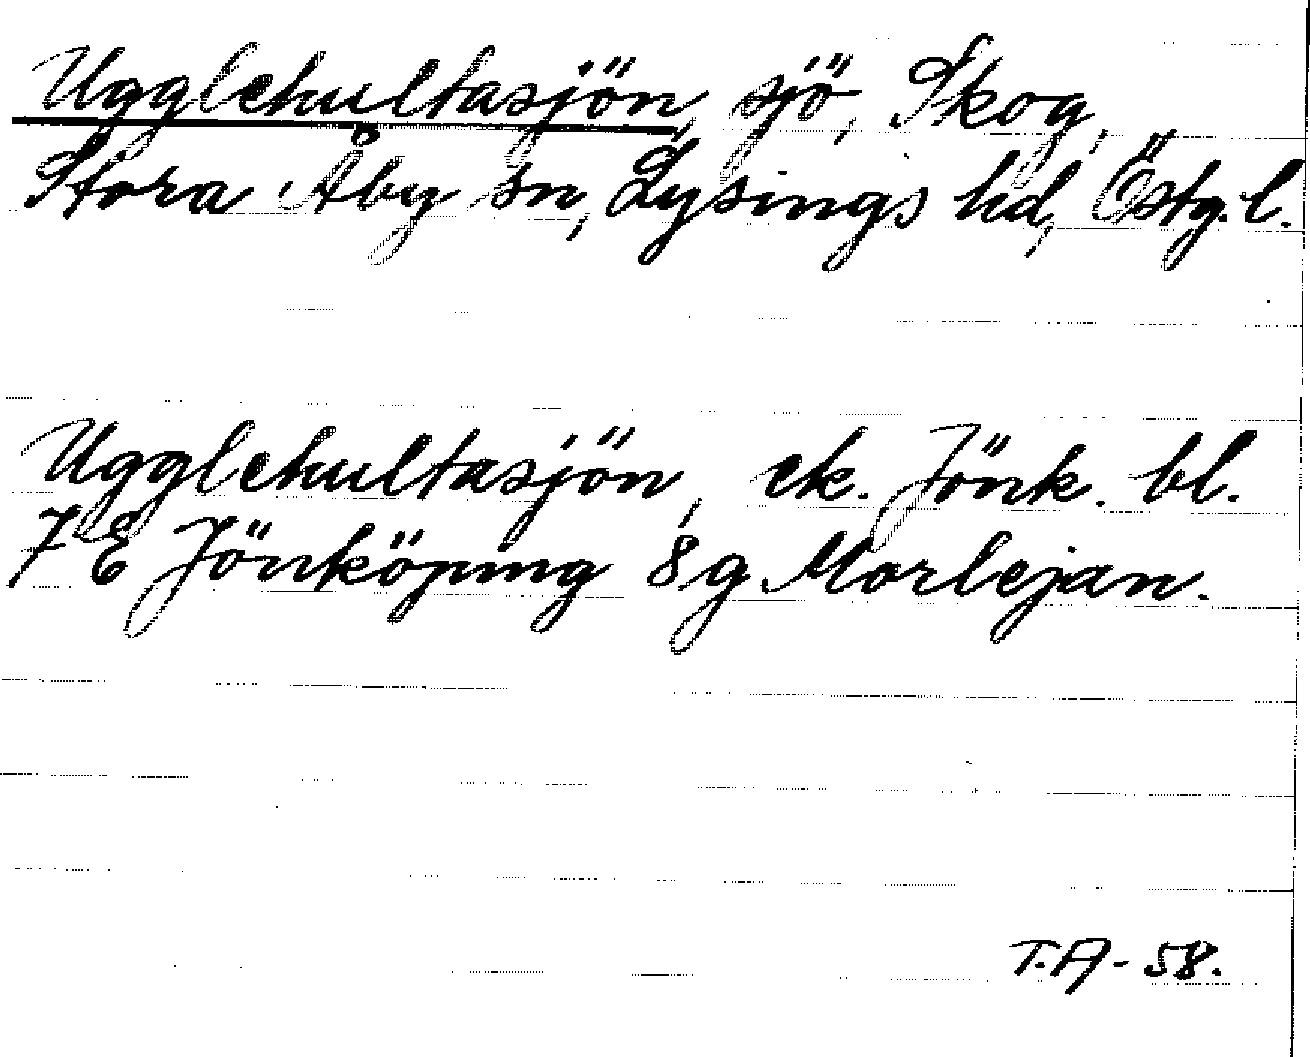 Ugglehultasjön, sjö, Skog,
Stora Åby sn, Lysings hd, Östg.l.
Ugglehultasjön, ek. Jönk. bl.
7 E Jönköping 8g Morlejan.
T.A - 58.